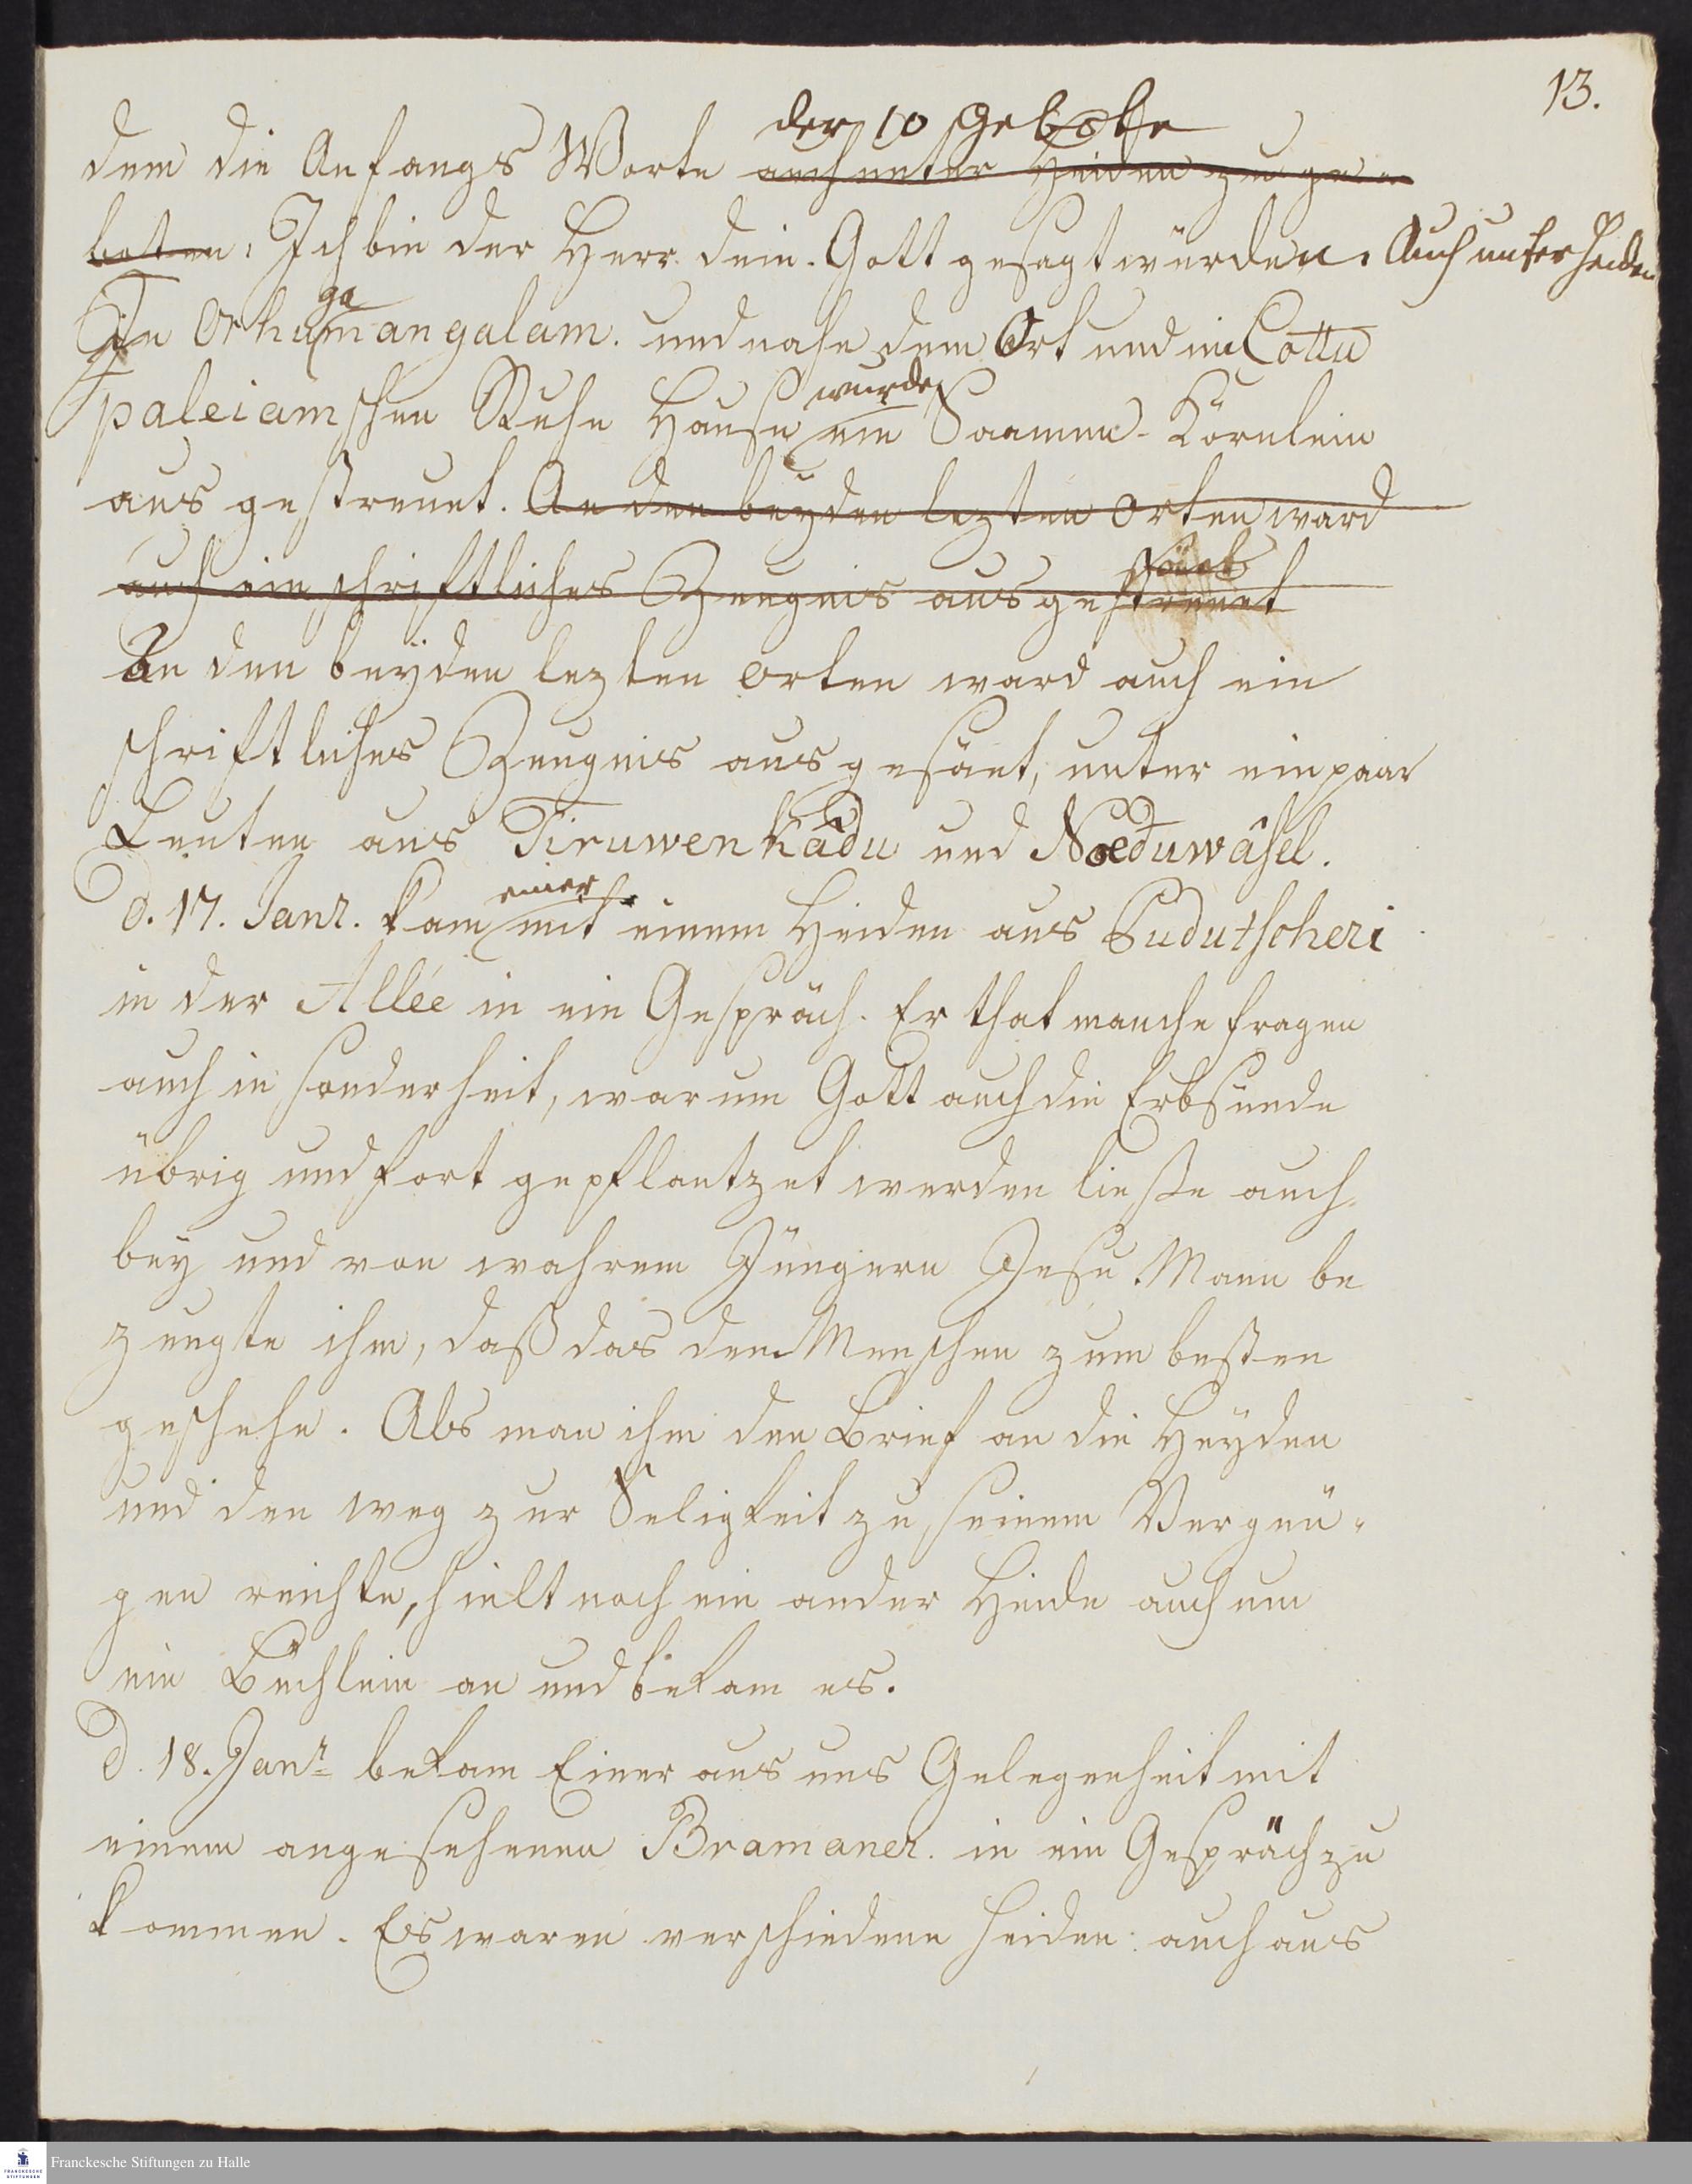 13.
der 10 Gebote
dem die Anfangs Worte auch unter Heiden zu ge-
boten: Ich bin der Herr dein Gott gesagt würden. Auch unter Heiden
ga
In Orhumangalam. und nahe dem Ort und im Cottu
paleiamschen Ruhe Hause wurde ein Saamen-Körnlein
aus gestreuet. An den beyden lezten Orten ward
auch ein schriftliches Zeugnis aus gestreuet
An den beyden lezten Orten ward auch ein
schriftliches Zeugnis aus gesäet, unter ein paar
Leuten aus Tiruwenkâdu und Noeduwâsel.
d. 17. Janr. kam einer mit einem Heiden aus Pudutscheri
in der Allée in ein Gespräch. Er that manche fragen
auch in sonderheit, warum Gott auch die Erbsünde
übrig und fort gepflantzet werden ließe auch
bey und von wahren Jüngern Jesu. Mann be
zeugte ihm, daß das dem Menschen zum besten
geschehe. Als man ihm den Brief an die Heyden
und den weg zur Seligkeit zu seinem Vergnü-
gen reichte, hielt noch ein ander Heide auch um
ein Büchlein an und bekam es.
d. 18. Janr. bekam Einer aus uns Gelegenheit mit
einem angesehenen Bramaner. in ein Gespräch zu
kommen. Es waren verschiedene Heiden auch aus
Franckesche Stiftungen zu Halle